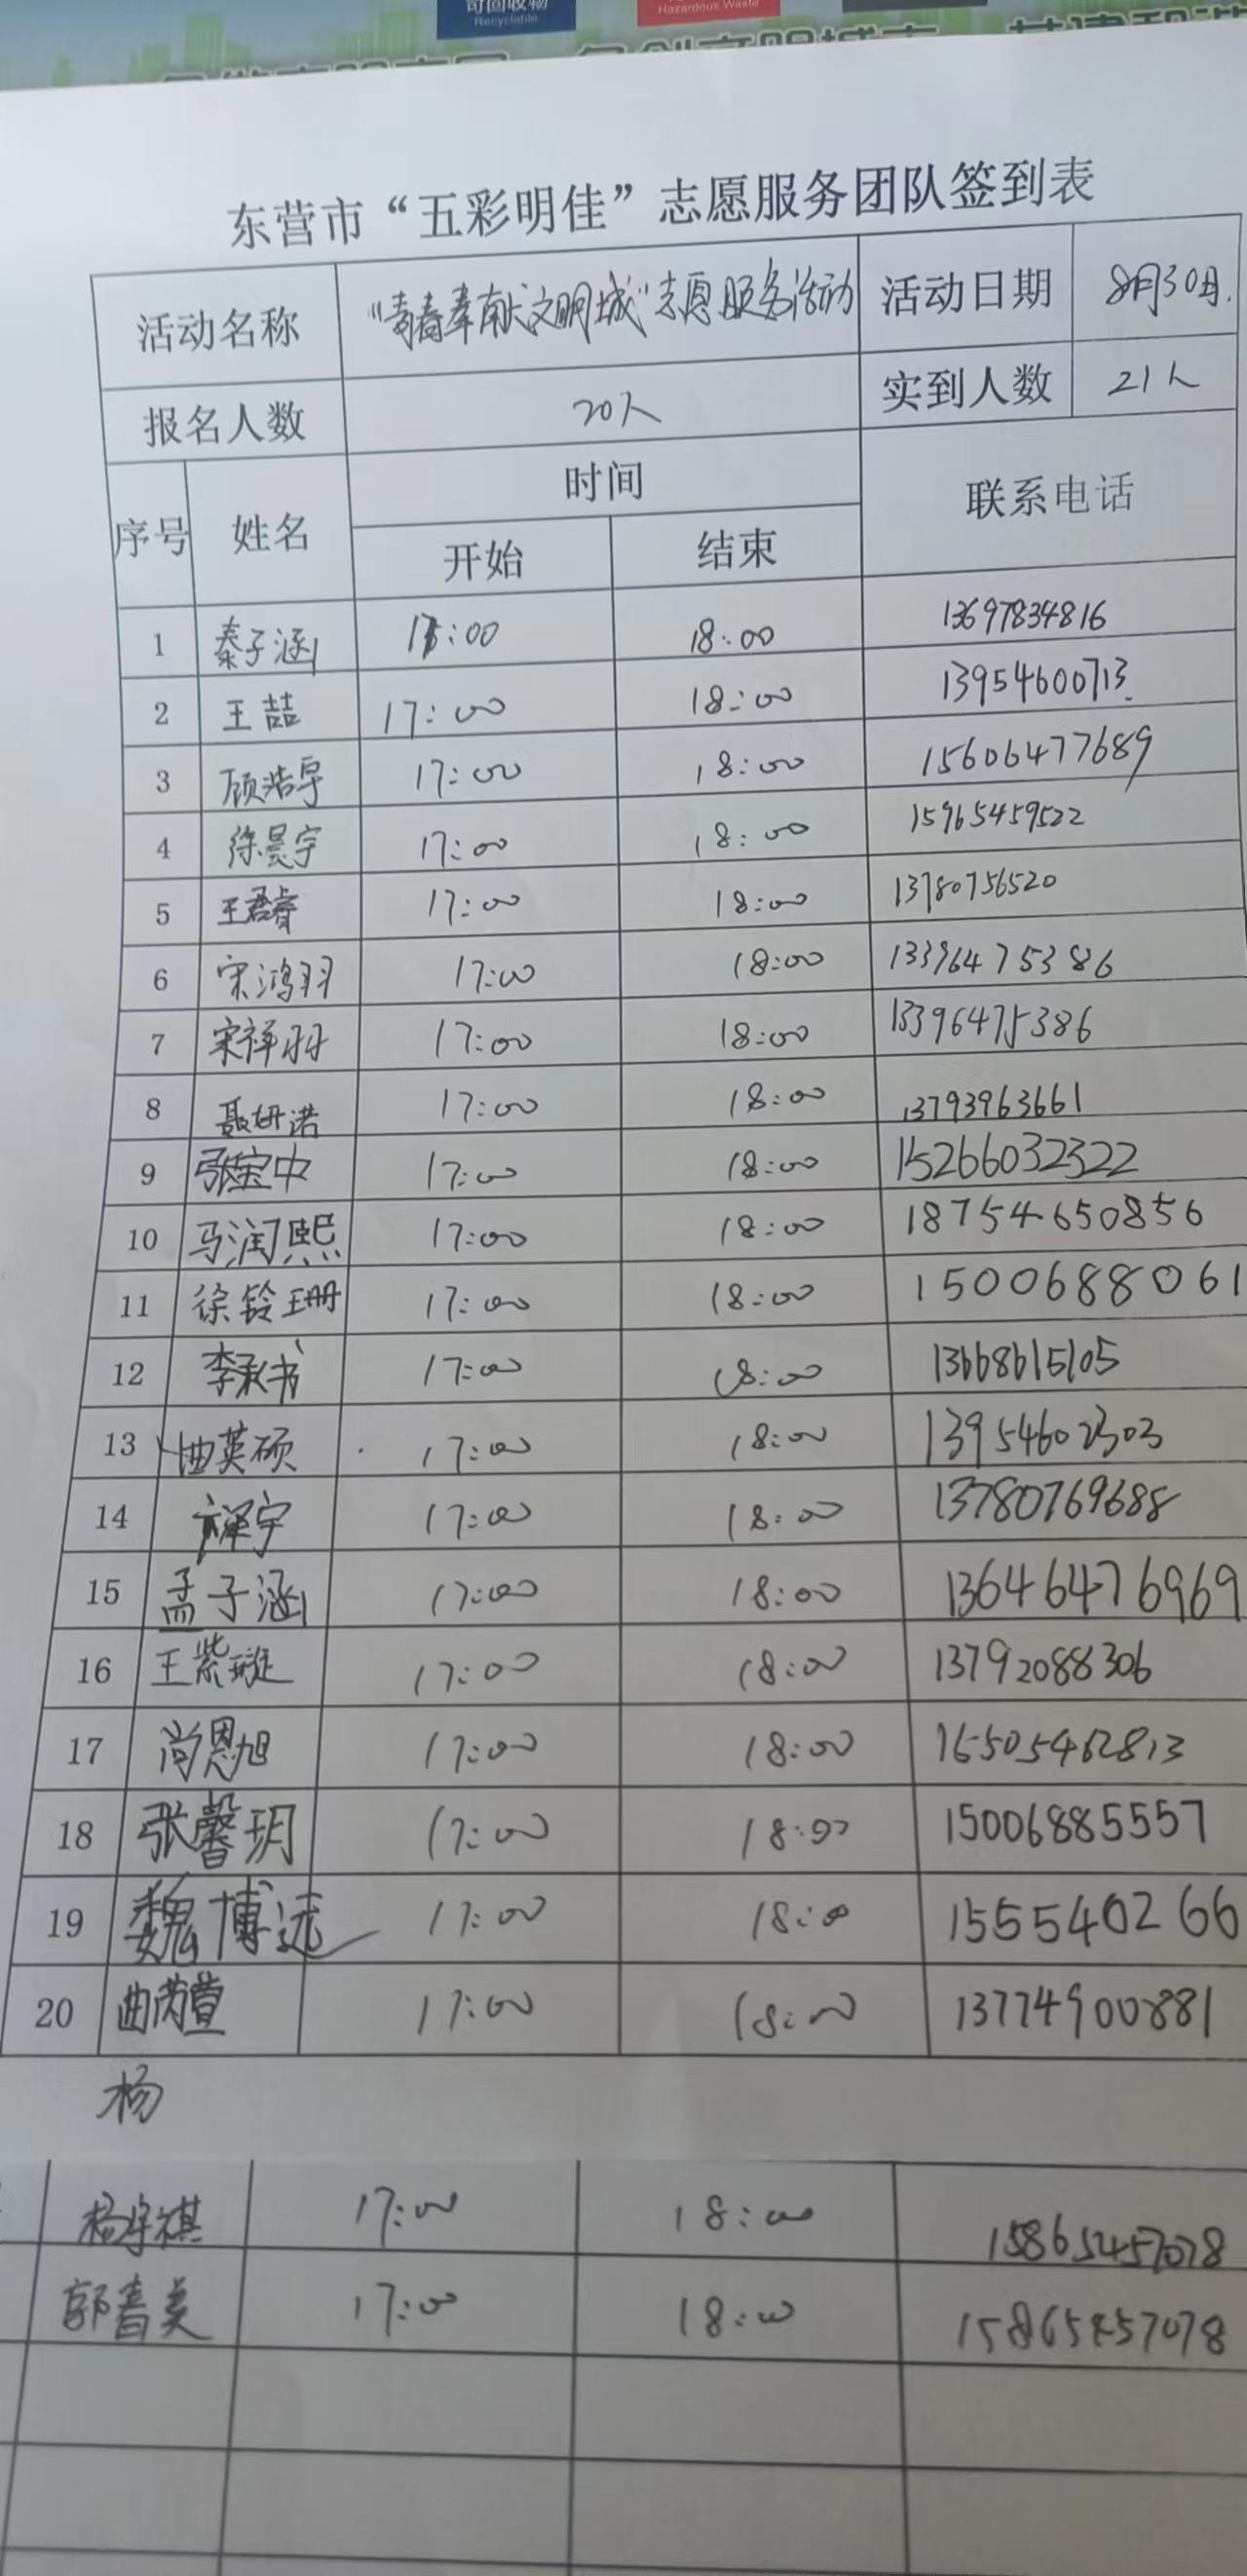 可回收物
Recyclable
Hazardous Waste
东营市“五彩明佳”志愿服务团队签到表
活动名称 “青春奉献文明城”志愿服务活动 活动日期 8月30日.
报名人数 20人 实到人数 21人
序号 姓名 时间 联系电话
开始 结束
1 秦子涵 17:00 18:00 13697834816
2 王喆 17:00 18:00 13954600713
3 顾浩宇 17:00 18:00 15606477689
4 徐昊宇 17:00 18:00 15965459522
5 王君睿 17:00 18:00 13780756520
6 宋鸿羽 17:00 18:00 13396475386
7 宋祥羽 17:00 18:00 13396475386
8 聂妍诺 17:00 18:00 13793963661
9 张宝中 17:00 18:00 15266032322
10 马润熙 17:00 18:00 18754650856
11 徐铃珊 17:00 18:00 15006888061
12 李承书 17:00 18:00 13668615105
13 曲英硕 17:00 18:00 13954602303
14 17:00 18:00 13780769688
15 孟子涵 17:00 18:00 13646476969
16 王紫璇 17:00 18:00 13792088306
17 尚恩旭 17:00 18:00 15505462813
18 张馨玥 17:00 18:00 15006885557
19 魏博远 17:00 18:00 1555540266
20 曲芮萱 17:00 18:00 13774900881
杨
杨宇祺 17:00 18:00 15865457078
郭春美 17:00 18:00 15865457078